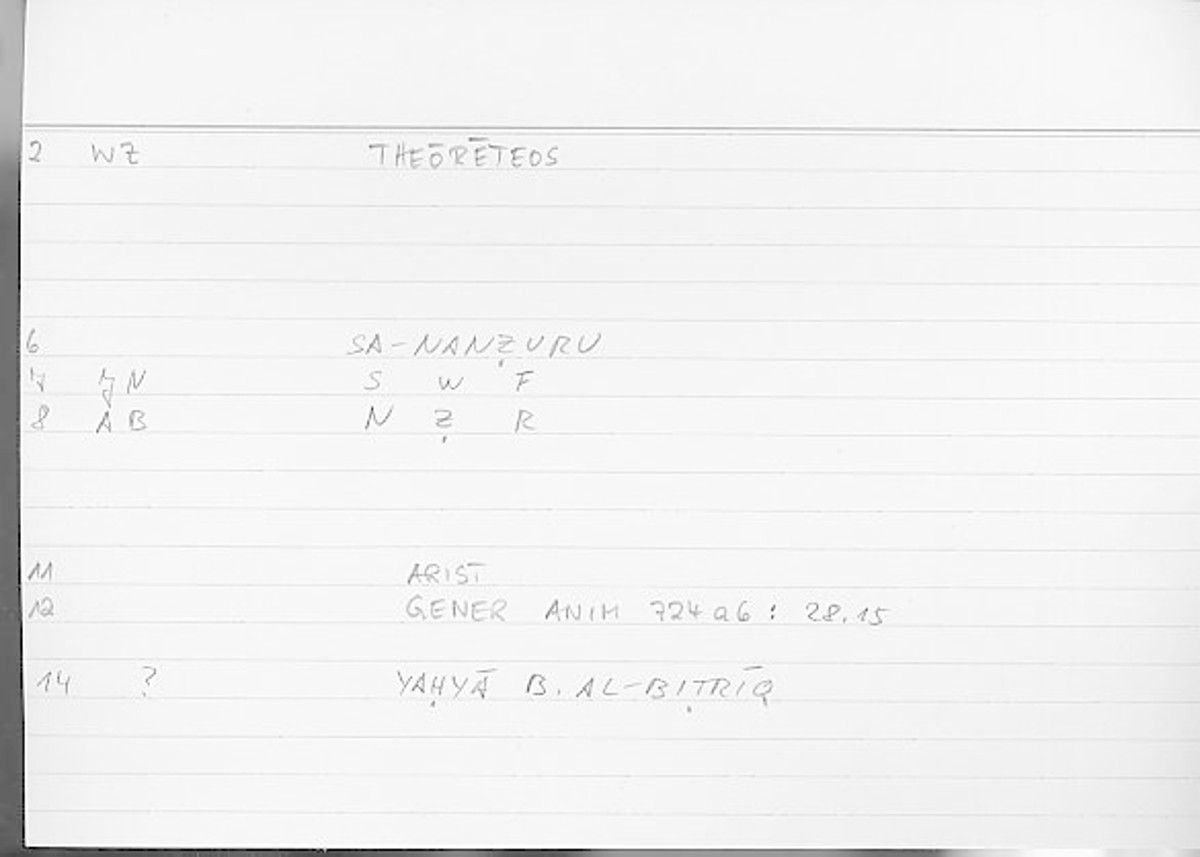 2 WZ THEŌRĒTEOS
6 SA-NANẒURU
7 JN S W F
8 AB N Ẓ R
11 ARIST
12 GENER ANIM 724a6: 28.15
14 ? YAḤYĀ B. AL-BIṬRĪQ